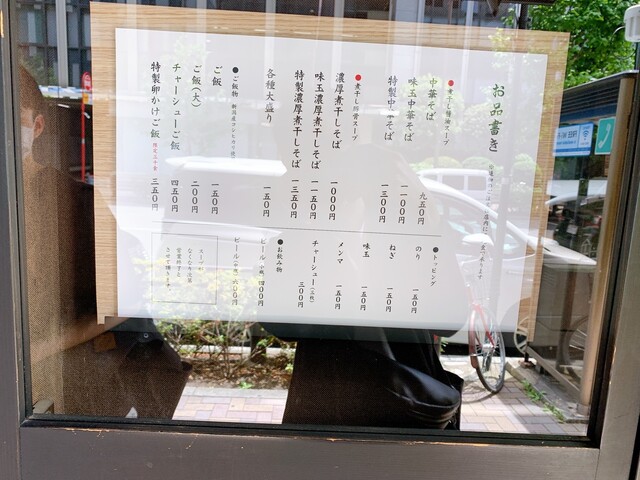 お品書き
●煮干し豚骨スープ
中華そば 九五〇円
味玉中華そば 一一〇〇円
特製中華そば 一三〇〇円
●煮干し豚骨スープ
濃厚煮干しそば 一〇〇〇円
味玉濃厚煮干しそば 一一五〇円
特製濃厚煮干しそば 一三五〇円
各種大盛り 一五〇円
●ご飯物
ご飯 一五〇円
ご飯(大) 二〇〇円
チャーシューご飯 四五〇円
特製卵かけご飯 三五〇円
●トッピング
のり 一五〇円
ねぎ 一五〇円
味玉 一五〇円
メンマ 一五〇円
チャーシュー(三枚) 三〇〇円
●お飲み物
ビール(小瓶) 四〇〇円
ビール(中瓶) 六〇〇円
スープが
なくなり次第
営業終了と
させて頂きます。